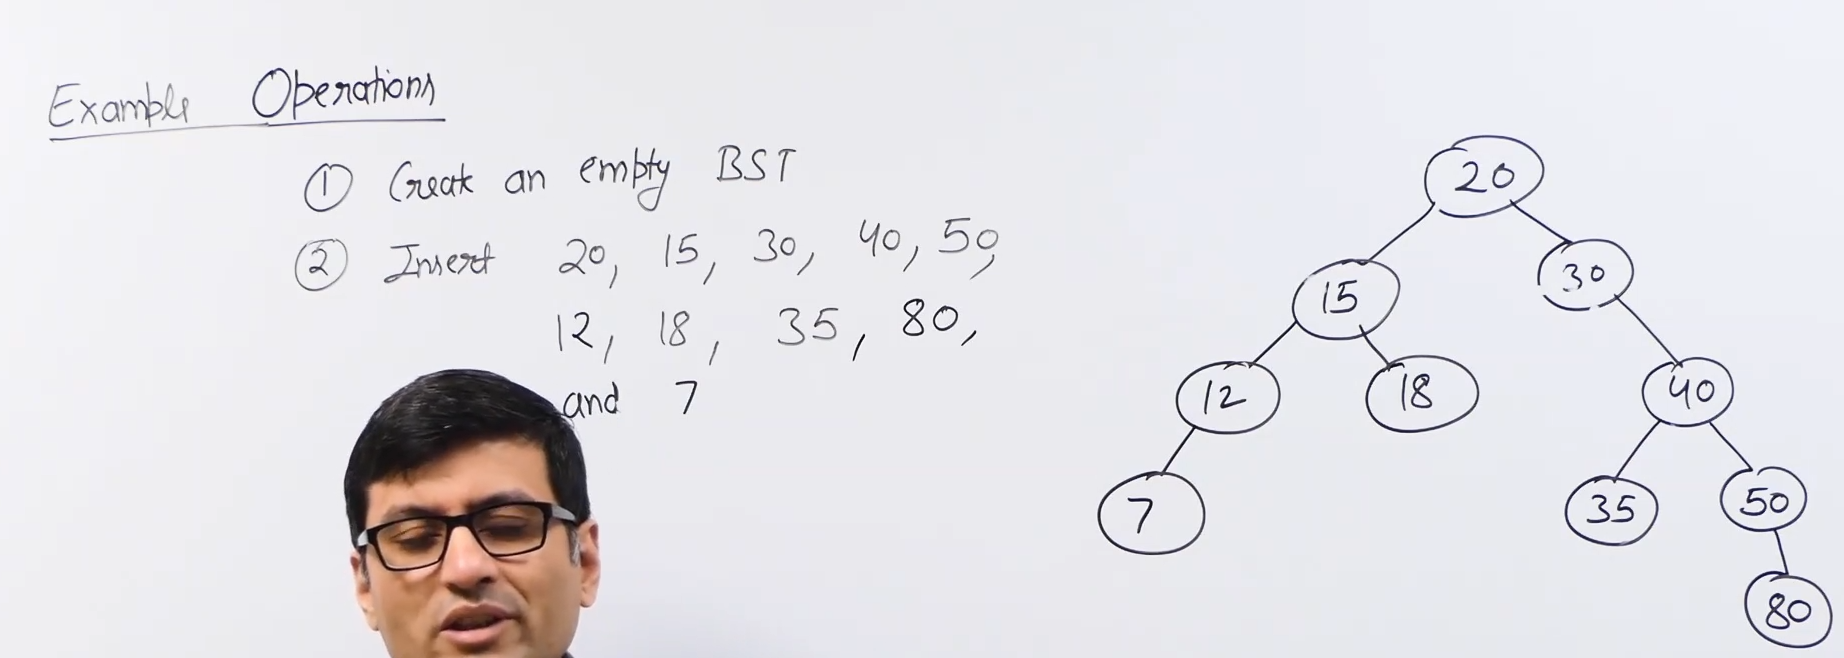 Example Operations
① Create an empty BST
② Insert 20, 15, 30, 40, 50,
12, 18, 35, 80,
and 7
20
15 30
12 18 40
7 35 50
80